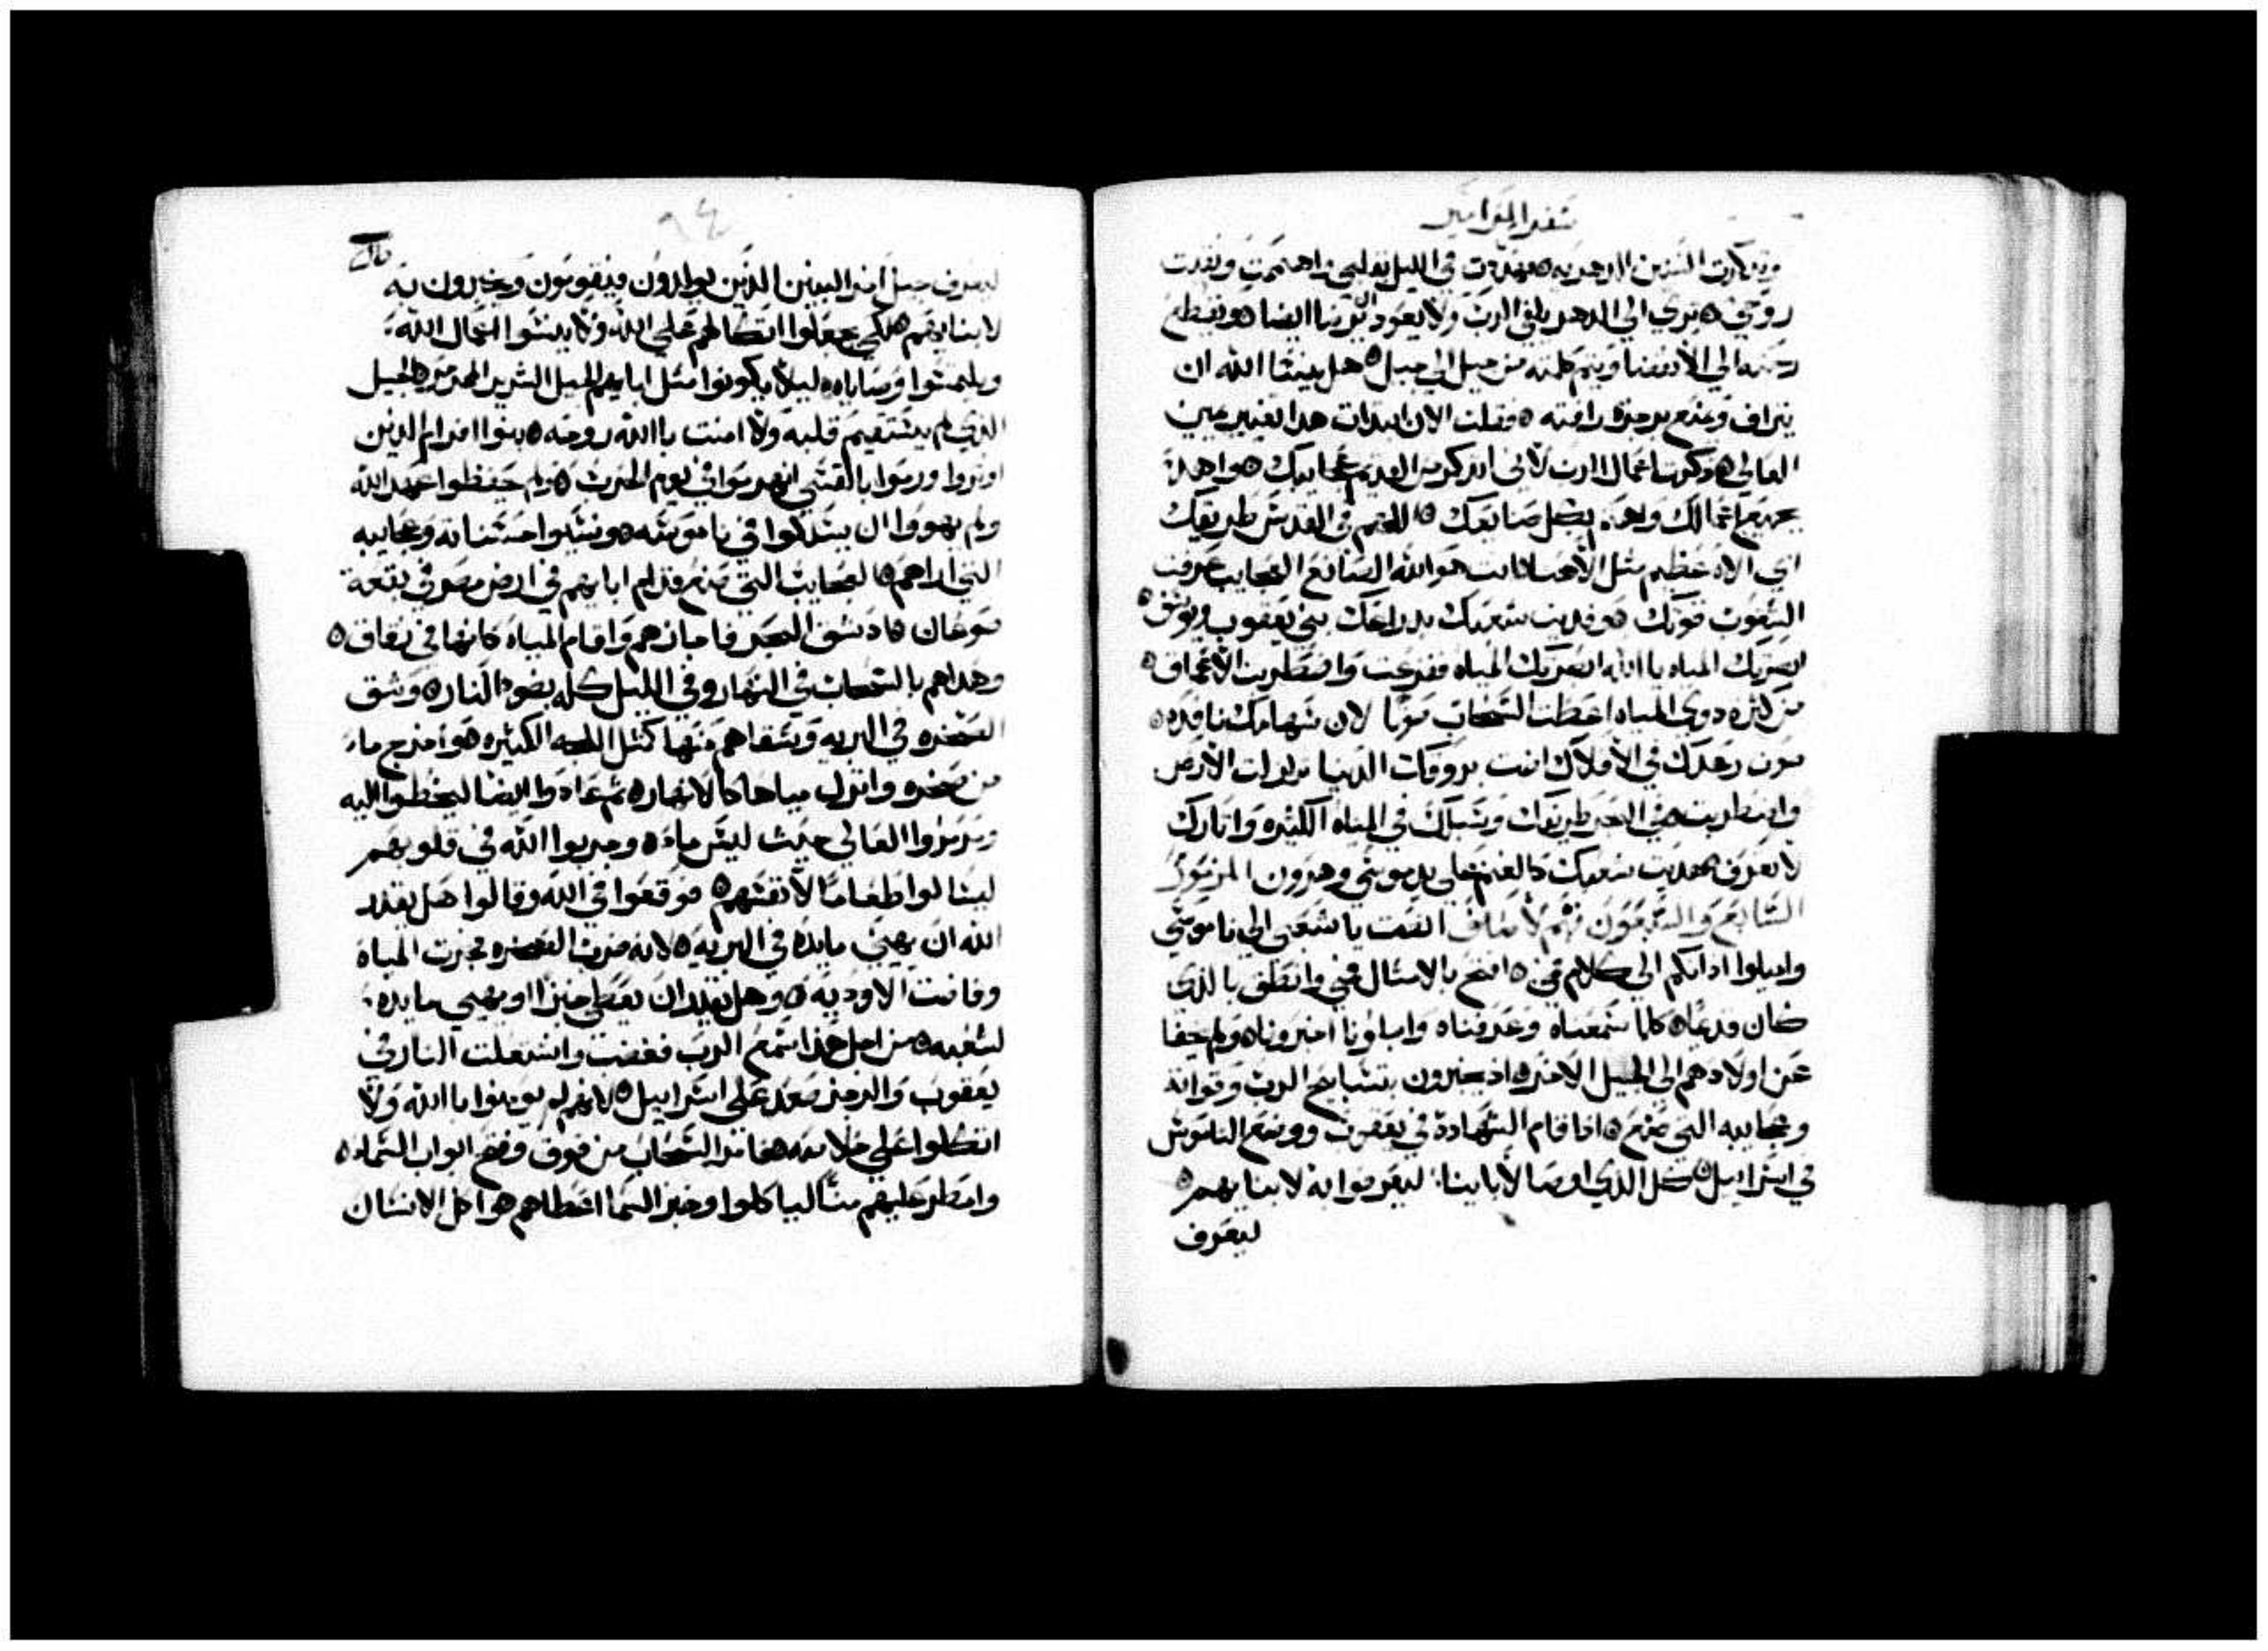 سفر المزامير
وتذكرت السنين الدهريه ه وهذيت في الليل بقلبي واهتممت وبحثت
روحي ه ترى الى الدهر يلقي الرب ولا يعود ان يرضا ايضا ه ويقطع
رحمته الى الانقضا ويتم كلمته من جيل الى جيل ه هل ينسا الله ان
يتراف ويمنع برجزه رافته ه فقلت الان ابتدات هدا تغيير يمين
العالي ه ذكرت اعمال الرب لاني ادكر من القديم عجايبك ه واهدا
بجميع اعمالك واهدا بكل صنايعك ه اللهم في القدس طريقك
اي الاه عظيم مثل الاهنا انت هو الله الصانع العجايب عرفت
الشعوب قوتك ه وفديت شعبك بدراعك بني يعقوب ويوسف ه
ابصرتك المياه يا الله ابصرتك المياه ففزعت واضطربت الاعماق ه
من كثره دوي المياه اعطت السحاب صوتا لان سهامك نافده ه
صوت رعدك في الافلاك اضت بروقك الدنيا تزلزلت الارض
واضطربت ه في البحر طريقك وسبلك في المياه الكثيره واتارك
لا تعرف ه هديت شعبك كالغنم على يد موسي وهرون المزمور
السابع والسبعون فهم لاساف انصت يا شعبي الى ناموسي
واميلوا ادانكم الى كلام فمي ه افتح بالامثال فمي وانطق بالذي
كان قديما ه كلما سمعناه وعرفناه واباونا اخبرونا ه ولم يخفا
عن اولادهم الى الجيل الاخر ه اد يخبرون بتسابيح الرب وقواته
وعجايبه التي صنع ه اذا قام الشهادة في يعقوب ووضع الناموس
في اسراييل ه كل الذي اوصا لاباينا ليعرفوا به لابنايهم ه
ليعرف
٩٤
ليعرف جيل اخر البنين الذين يولدون فيقومون ويخبرون به
لابنايهم ه لكي يجعلوا اتكالهم على الله ولا ينسوا اعمال الله
ويلتمسوا وصاياه ه ليلا يكونوا مثل ابايهم الجيل الشرير المتمرمر ه الجيل
الذي لم يستقيم قلبه ولا امنت بالله روحه ه بنوا افرام الدين
اوتروا ورموا بالقسي انهزموا في يوم الحرب ه ولم يحفظوا عهد الله
ولم يهووا ان يسلكوا في ناموسه ه ونسيوا حسناته وعجايبه
التي اراهم ه العجايب التي صنع قدام ابايهم في ارض مصر في بقعة
صوعان ه اذ شق البحر فاجازهم واقام المياه كانها في زقاق ه
وهداهم بالسحاب في النهار وفي الليل كله بضو النار ه وشق
الصخره في البريه وسقاهم منها كمثل اللجه الكثيره ه واخرج ماء
من صخره وانزل مياها كالانهار ه ثم عادوا ايضا ليخطوا اليه
ومرمروا العالي حيث ليس ماء ه وجربوا الله في قلوبهم
ليسالوا طعاما لانفسهم ه فوقعوا في الله وقالوا هل يقدر
الله ان يهيي مايده في البريه ه لانه ضرب الصخره فجرت المياه
وفاضت الاوديه ه وهل يقدر ان يعطي خبزا او يهيي مايده
لشعبه ه من اجل هذا سمع الرب فغضب واشتعلت النار في
يعقوب والرجز صعد على اسراييل ه لانهم لم يومنوا بالله ولا
اتكلوا على خلاصه ه فامر السحاب من فوق وفتح ابواب السماء ه
وامطر عليهم منا لياكلوا وخبز السما اعطاهم ه واكل الانسان